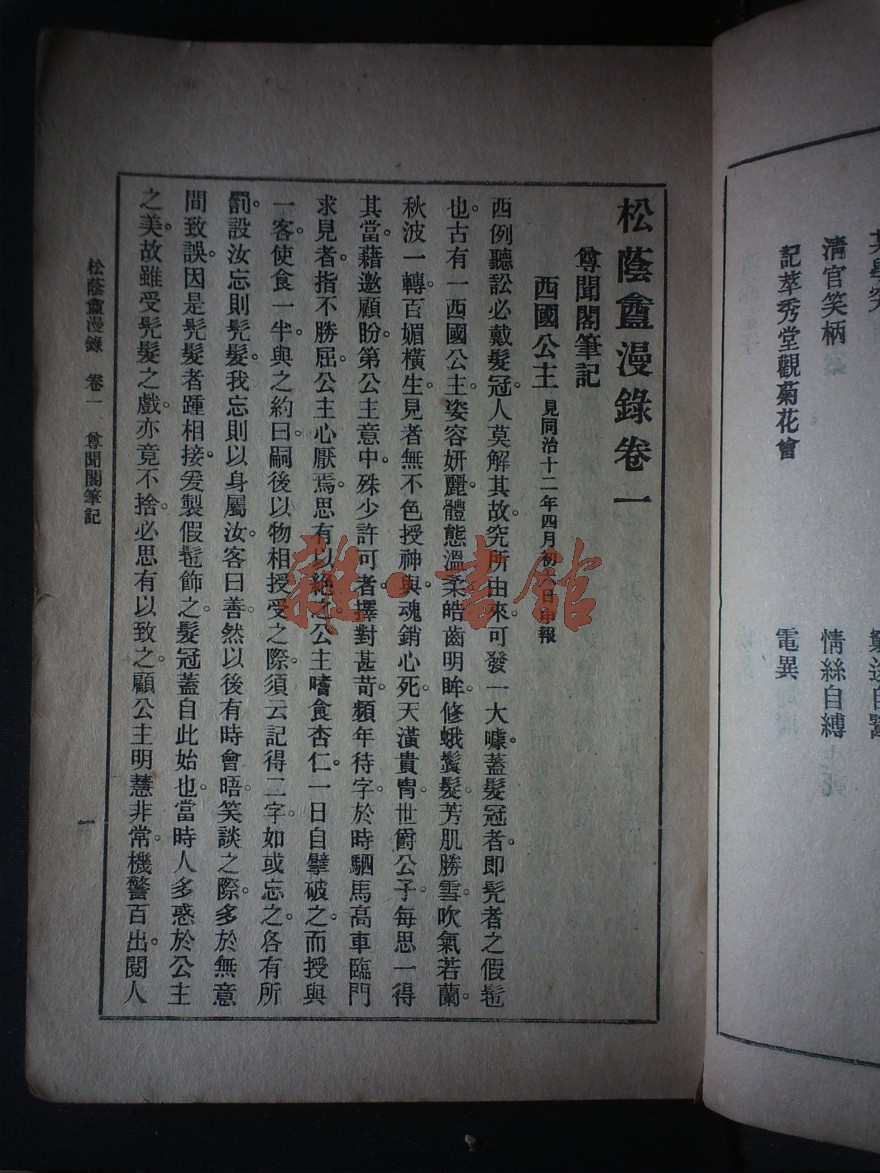 松蔭盦漫錄卷一
尊聞閣筆記
西國公主 見同治十二年四月初八日申報
西例聽訟必戴髮冠人莫解其故究所由來可發一大噱。蓋髮冠者即髠者之假髢
也。古有一西國公主姿容妍麗體態溫柔皓齒明眸修蛾鬒髮芳肌勝雪吹氣若蘭。
秋波一轉百媚橫生見者無不色授神與魂銷心死天潢貴冑世爵公子每思一得
其當藉邀顧盼第公主意中殊少許可者擇對甚苛頻年待字於時駟馬高車臨門
求見者指不勝屈公主心厭焉思有以絕之公主嗜食杏仁一日自擘破之而授與
一客使食一半與之約曰嗣後以物相授受之際須云記得二字如或忘之各有所
罰設汝忘則髠髮我忘則以身屬汝客曰善然以後有時會晤笑談之際多於無意
間致誤因是髠髮者踵相接爰製假髢飾之髮冠蓋自此始也當時人多惑於公主
之美故雖受髠髮之戲亦竟不捨必思有以致之顧公主明慧非常機警百出閱人
松蔭盦漫錄 卷一 尊聞閣筆記
一
清官笑柄
情絲自縛
記萃秀堂觀菊花會
電異
雜·書館